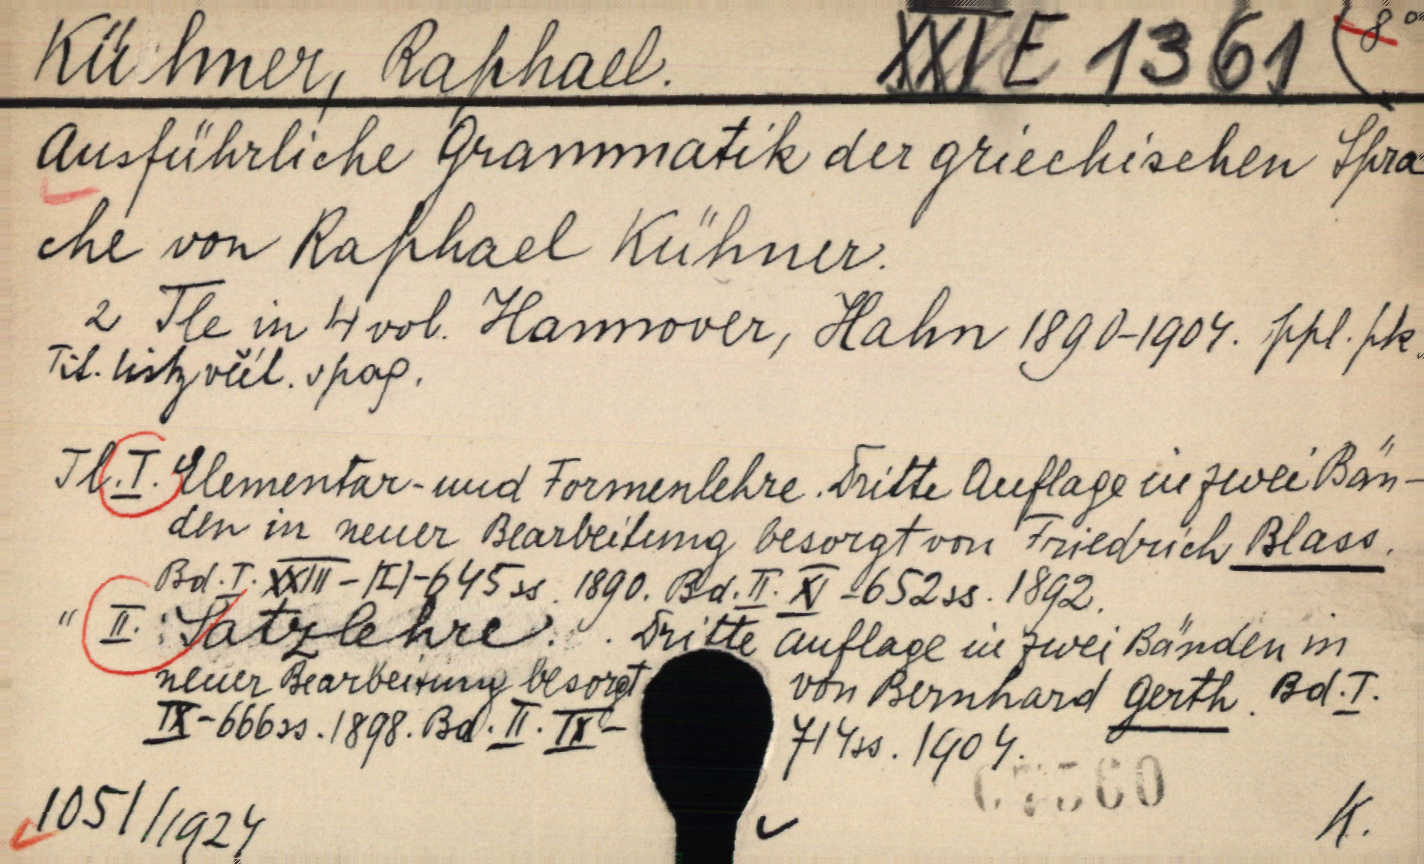 Kühner, Raphael. XXI E 1361 (8°
Ausführliche Grammatik der griechischen Spra-
che von Raphael Kühner.
2 Tle in 4 vol. Hannover, Hahn 1890-1904. ppl. pk.
Tit. listy
Tl. I. Elementar- und Formenlehre. Dritte Auflage in zwei Bän-
den in neuer Bearbeitung besorgt von Friedrich Blass.
Bd. I. XXIII-[I]-645 ss. 1890. Bd. II. XI-652 ss. 1892.
" II. : Satzlehre. Dritte Auflage in zwei Bänden in
neuer Bearbeitung besorgt von Bernhard Gerth. Bd. I.
IX-666 ss. 1898. Bd. II. IX-714 ss. 1904.
1051/1924 K.